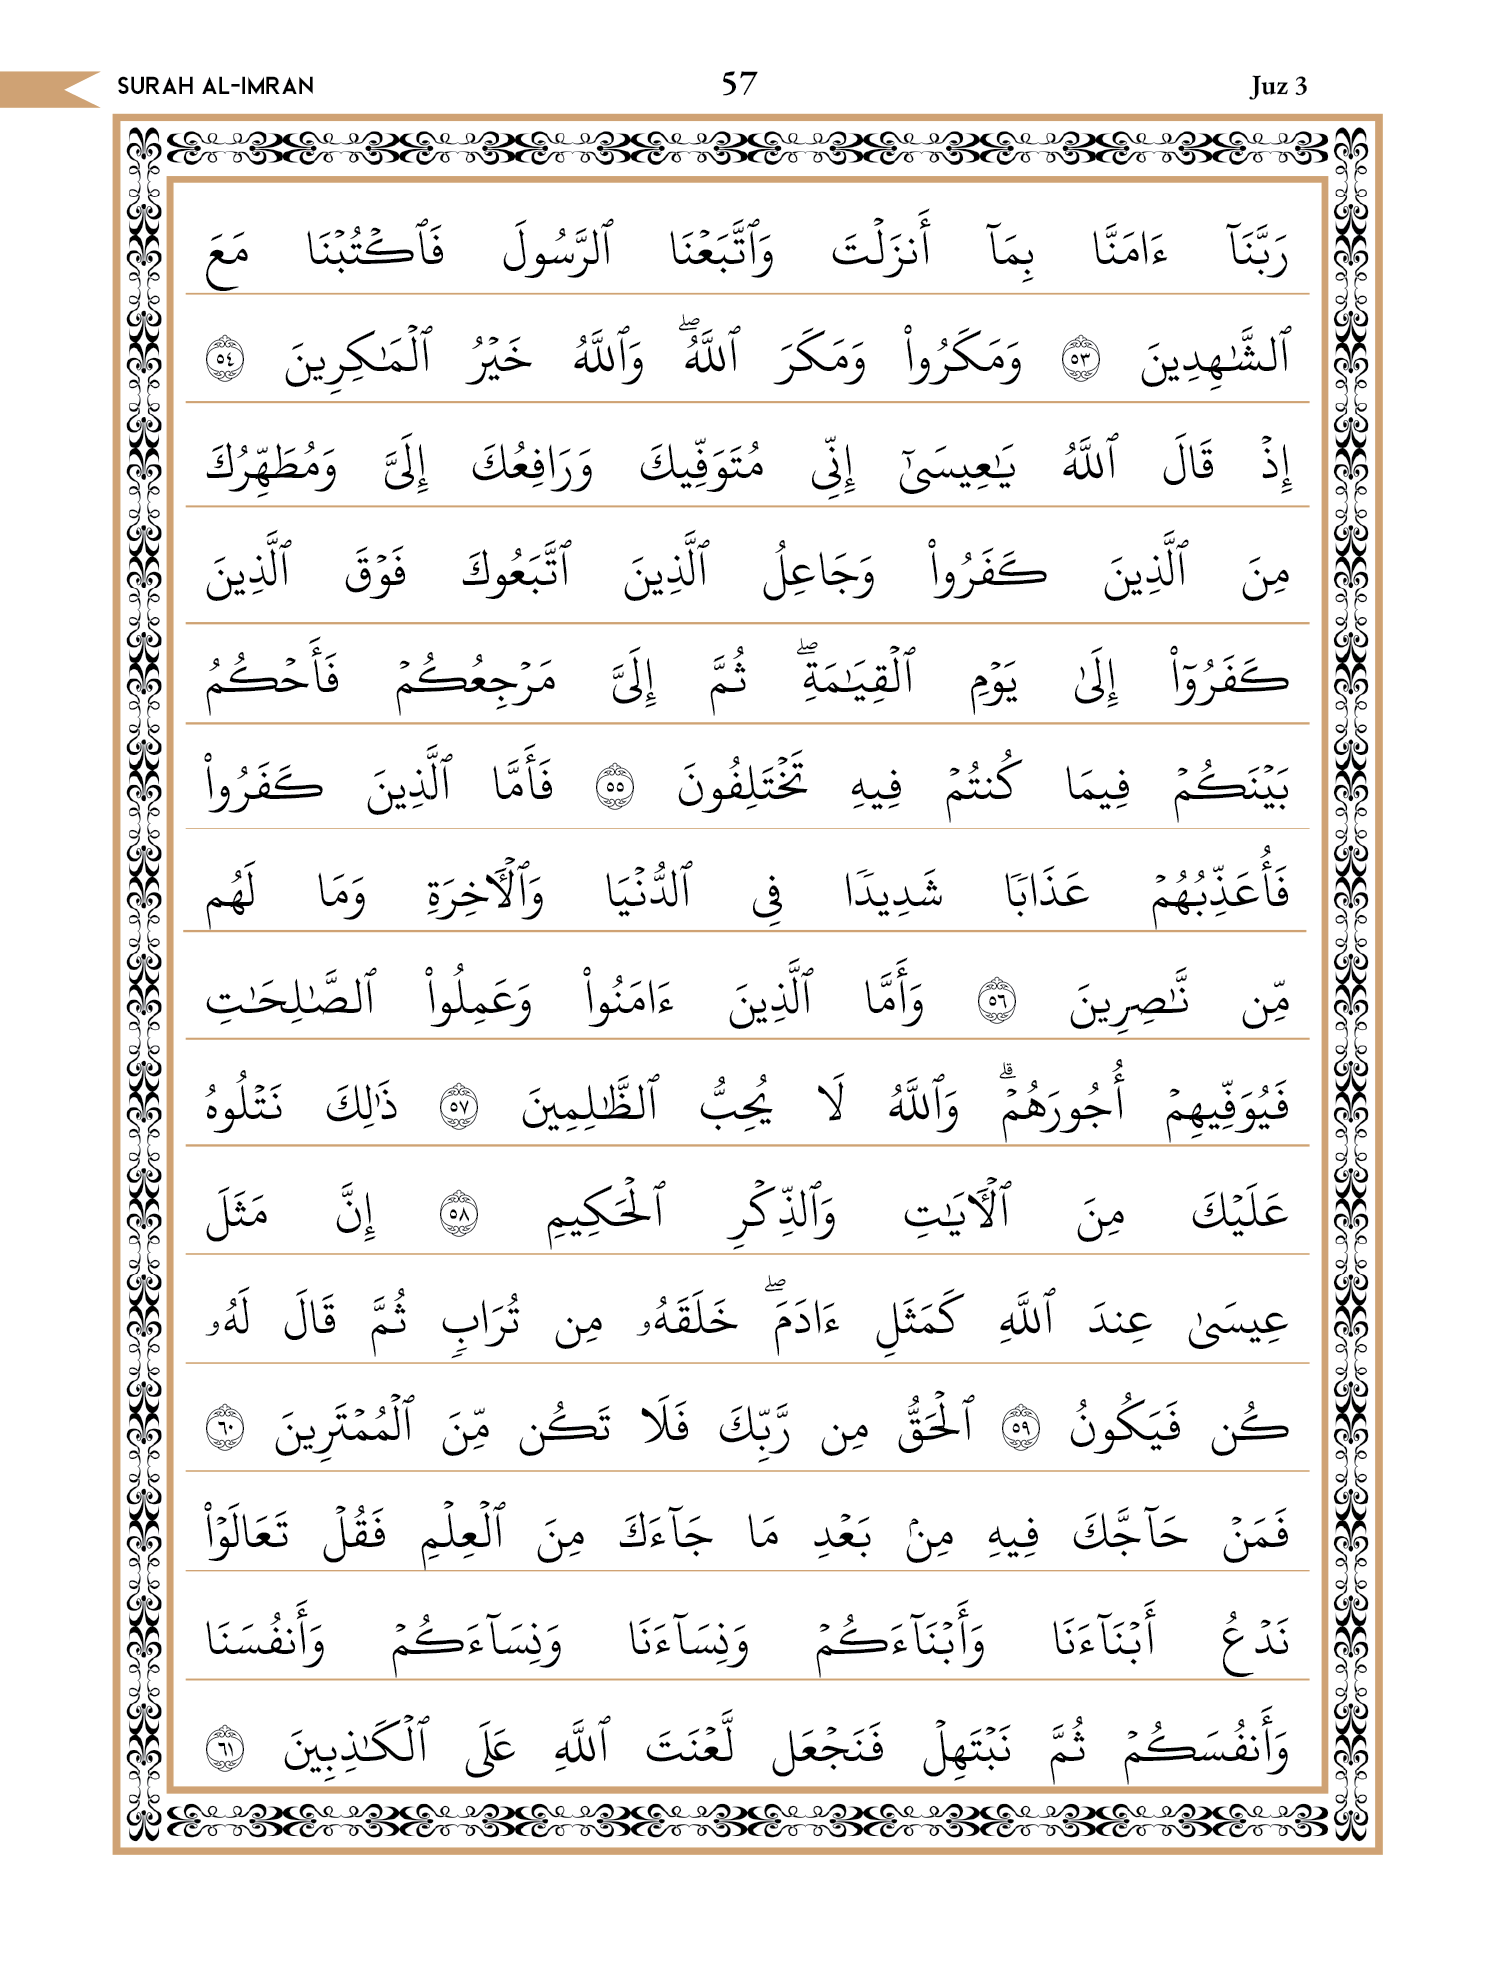 SURAH AL-IMRAN 57 Juz 3
رَبَّنَآ ءَامَنَّا بِمَآ أَنزَلۡتَ وَٱتَّبَعۡنَا ٱلرَّسُولَ فَٱكۡتُبۡنَا مَعَ
ٱلشَّٰهِدِينَ ٥٣ وَمَكَرُواْ وَمَكَرَ ٱللَّهُۖ وَٱللَّهُ خَيۡرُ ٱلۡمَٰكِرِينَ ٥٤
إِذۡ قَالَ ٱللَّهُ يَٰعِيسَىٰٓ إِنِّي مُتَوَفِّيكَ وَرَافِعُكَ إِلَيَّ وَمُطَهِّرُكَ
مِنَ ٱلَّذِينَ كَفَرُواْ وَجَاعِلُ ٱلَّذِينَ ٱتَّبَعُوكَ فَوۡقَ ٱلَّذِينَ
كَفَرُوٓاْ إِلَىٰ يَوۡمِ ٱلۡقِيَٰمَةِۖ ثُمَّ إِلَيَّ مَرۡجِعُكُمۡ فَأَحۡكُمُ
بَيۡنَكُمۡ فِيمَا كُنتُمۡ فِيهِ تَخۡتَلِفُونَ ٥٥ فَأَمَّا ٱلَّذِينَ كَفَرُواْ
فَأُعَذِّبُهُمۡ عَذَابٗا شَدِيدٗا فِي ٱلدُّنۡيَا وَٱلۡأٓخِرَةِ وَمَا لَهُم
مِّن نَّٰصِرِينَ ٥٦ وَأَمَّا ٱلَّذِينَ ءَامَنُواْ وَعَمِلُواْ ٱلصَّٰلِحَٰتِ
فَيُوَفِّيهِمۡ أُجُورَهُمۡۗ وَٱللَّهُ لَا يُحِبُّ ٱلظَّٰلِمِينَ ٥٧ ذَٰلِكَ نَتۡلُوهُ
عَلَيۡكَ مِنَ ٱلۡأٓيَٰتِ وَٱلذِّكۡرِ ٱلۡحَكِيمِ ٥٨ إِنَّ مَثَلَ
عِيسَىٰ عِندَ ٱللَّهِ كَمَثَلِ ءَادَمَۖ خَلَقَهُۥ مِن تُرَابٖ ثُمَّ قَالَ لَهُۥ
كُن فَيَكُونُ ٥٩ ٱلۡحَقُّ مِن رَّبِّكَ فَلَا تَكُن مِّنَ ٱلۡمُمۡتَرِينَ ٦٠
فَمَنۡ حَآجَّكَ فِيهِ مِنۢ بَعۡدِ مَا جَآءَكَ مِنَ ٱلۡعِلۡمِ فَقُلۡ تَعَالَوۡاْ
نَدۡعُ أَبۡنَآءَنَا وَأَبۡنَآءَكُمۡ وَنِسَآءَنَا وَنِسَآءَكُمۡ وَأَنفُسَنَا
وَأَنفُسَكُمۡ ثُمَّ نَبۡتَهِلۡ فَنَجۡعَل لَّعۡنَتَ ٱللَّهِ عَلَى ٱلۡكَٰذِبِينَ ٦١